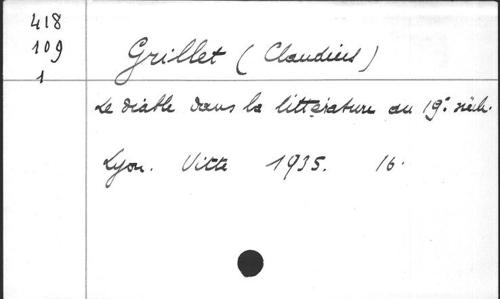 418
109
1
Grillet (Claudius)
Le diable dans la littérature au 19e siècle.
Lyon. Vitte 1935. 16.